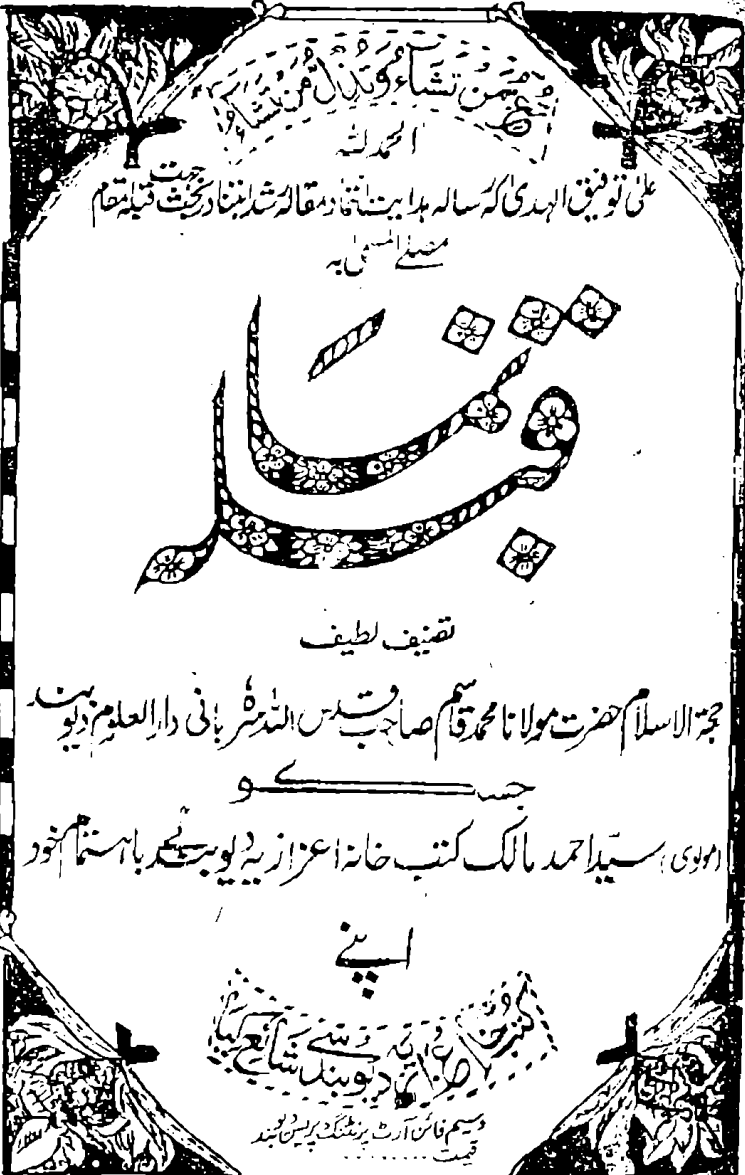 وتعز من تشاء وتذل من تشاء
الحمد للہ
علیٰ توفیق الہدیٰ کہ رسالہ ہدایت مقالہ در بحث جہت قبلہ مقام
مصلے المسمیٰ بہ
قبلہ نما
تصنیف لطیف
حجۃ الاسلام حضرت مولانا محمد قاسم صاحب قدس اللہ سرہٗ بانی دارالعلوم دیوبند
جس کو
(مولوی) سید احمد مالک کتب خانہ اعزازیہ دیوبند نے باہتمام خود
اپنے
کتب خانہ اعزازیہ دیوبند سے شائع کیا
وسیم فائن آرٹ پرنٹنگ پریس دیوبند
قیمت ........